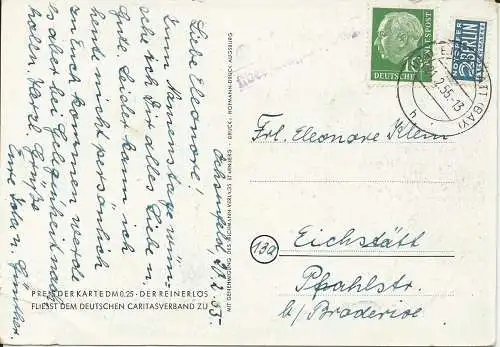 Ochsenfeld 20.2.55.
Liebe Eleonore!
Zum Namenstage wün-
sche ich Dir alles Liebe u.
Gute. Leider kann ich
heute nicht persönlich
zu Euch kommen werde
es aber bei Gelegenheit nach-
holen. Herzl. Grüße
Eure Ida u. Günther.
PREIS DER KARTE DM 0,25 · DER REINERLÖS
FLIESST DEM DEUTSCHEN CARITASVERBAND ZU
MIT GENEHMIGUNG DES VERLAGS STARNBERG · DRUCK: HOFMANN-DRUCK AUGSBURG
10
DEUTSCHE BUNDESPOST
NOTOPFER
2 BERLIN
STEUERMARKE
(BAY)
2.55.-13
h
Frl. Eleonore Klein
13a
Eichstätt
Pfahlstr.
b/ Broderise